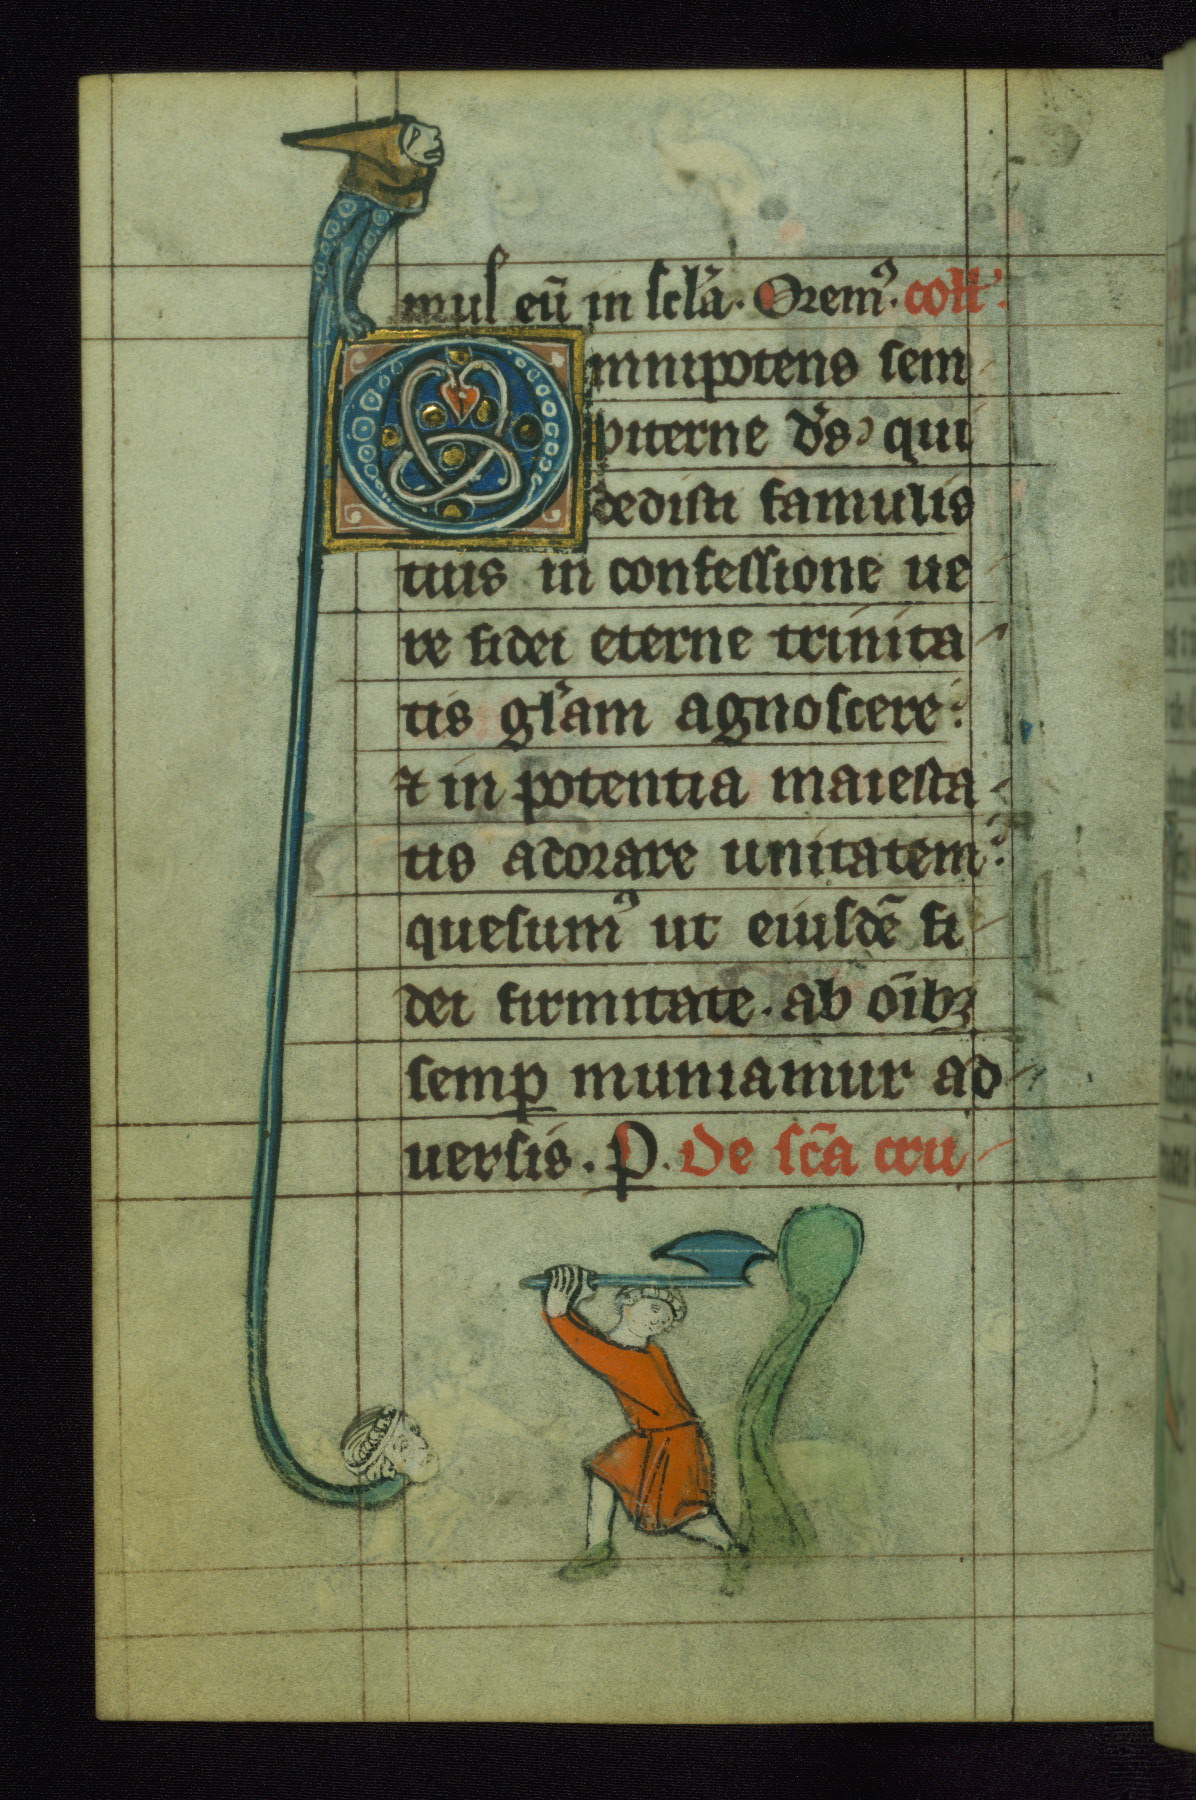 mus eū in scl̄a. Orem⁹. coll'.
Omnipotens sem
piterne d̄s qui
dedisti famulis
tuis in confessione ue
re fidei eterne trinita
tis gl̄am agnoscere:
⁊ in potentia maiesta
tis adorare unitatem:
quesum⁹ ut eiusdē fi
dei firmitate. ab oībꝫ
semꝑ muniamur ad
uersis. P. De sc̄a cru